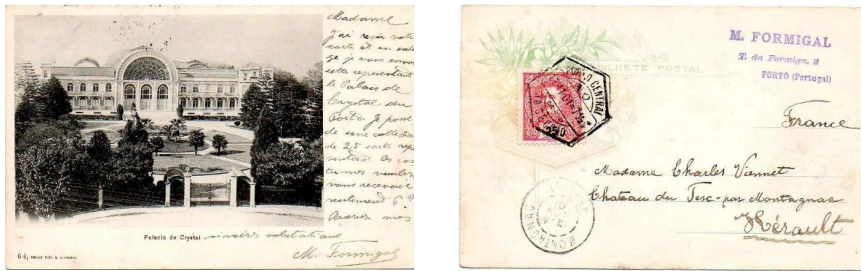 Madame
j'ai reçu votre
carte et en
je vous envoie
cette représentant
le Palais de
Crystal du
Porto je possède
de une collection
de 25 cartes repré
sentant les
vous recevoir
seulement 6
mes
sincères salutations
M. Formigal
Palacio de Crystal
64,
M. FORMIGAL
T. da Formiga, 2
PORTO (Portugal)
BILHETE POSTAL
PORTO CENTRAL
France
Madame Charles Viennet
Chateau du Tesc par Montagnac
Hérault
MONTAGNAC